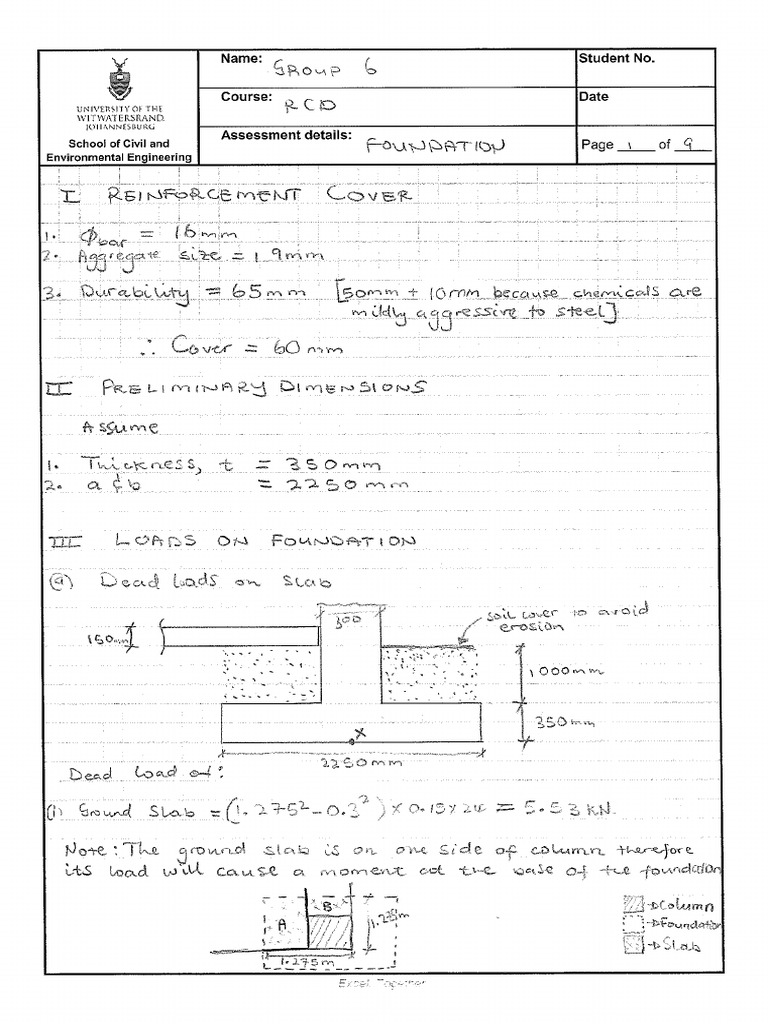 UNIVERSITY OF THE
WITWATERSRAND,
JOHANNESBURG
School of Civil and
Environmental Engineering
Name: GROUP 6
Student No.
Course: RCD
Date
Assessment details: FOUNDATION
Page 1 of 9
I REINFORCEMENT COVER
1. Φbar = 16mm
2. Aggregate size = 19mm
3. Durability = 65mm [50mm + 10mm because chemicals are
mildly aggressive to steel]
∴ Cover = 60mm
II PRELIMINARY DIMENSIONS
Assume
1. Thickness, t = 350mm
2. a & b = 2250mm
III LOADS ON FOUNDATION
(a) Dead loads on slab
300
soil cover to avoid
erosion
150mm
1000mm
350mm
X
2250mm
Dead load of:
(i) Ground slab = (1.275² - 0.3²) × 0.15 × 24 = 5.53 kN.
Note: The ground slab is on one side of column therefore
its load will cause a moment at the base of the foundation
A
B
1.275m
1.275m
Column
Foundation
Slab
Excel. Together